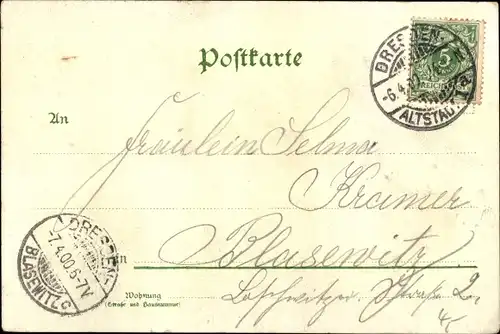 Postkarte
DRESDEN-
-6.4.
ALTSTADT
5
REICHSPOST
An
Fräulein Selma
Kramer
in Blasewitz
DRESDEN-
7.4.00.6-7V
BLASEWITZ
Wohnung
(Straße und Hausnummer)
Loschwitzer Straße 2